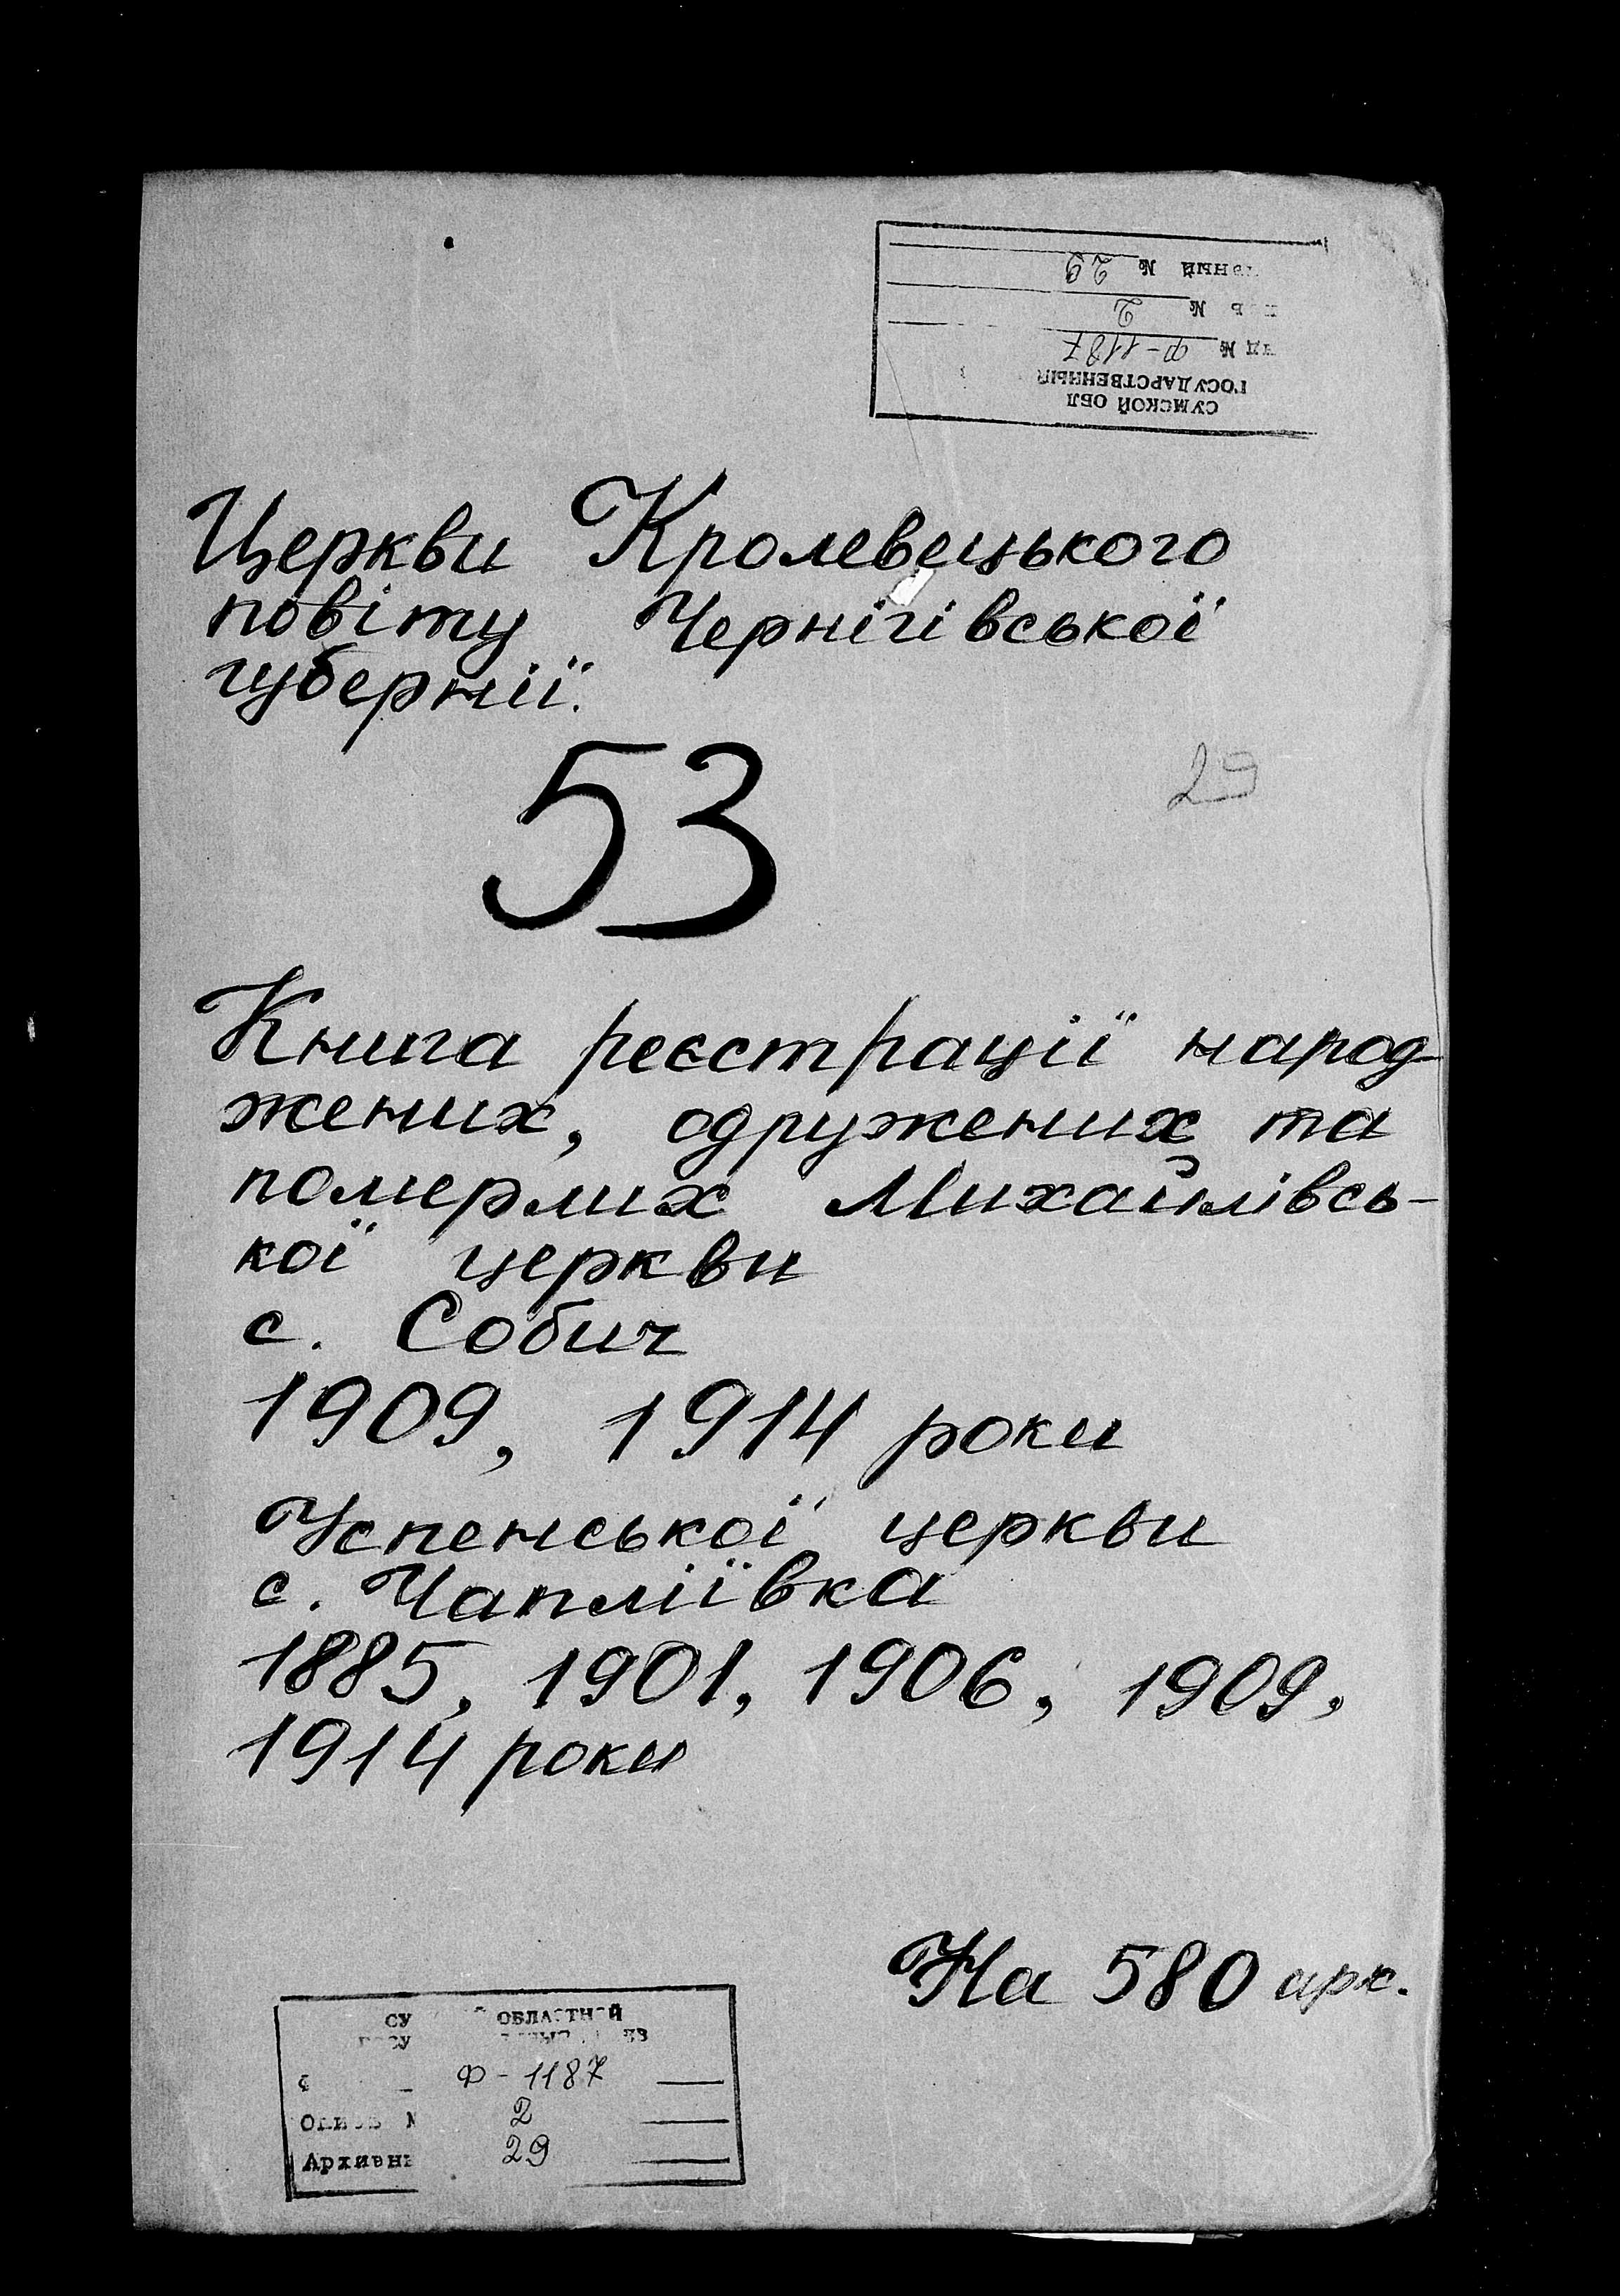 СУМСКОЙ ОБЛ
ГОСУДАРСТВЕННЫЙ
№ Ф-1187
№ 2
№ 29
Церкви Кролевецького
повіту Чернігівської
губернії.
53
29
Книга реєстрації народ-
жених, одружених та
померлих Михайлівсь-
кої церкви
с. Собич
1909, 1914 роки
Успенської церкви
с. Чапліївка
1885, 1901, 1906, 1909,
1914 роки
На 580 арк.
ОБЛАСТНОЙ
Ф-1187
2
29